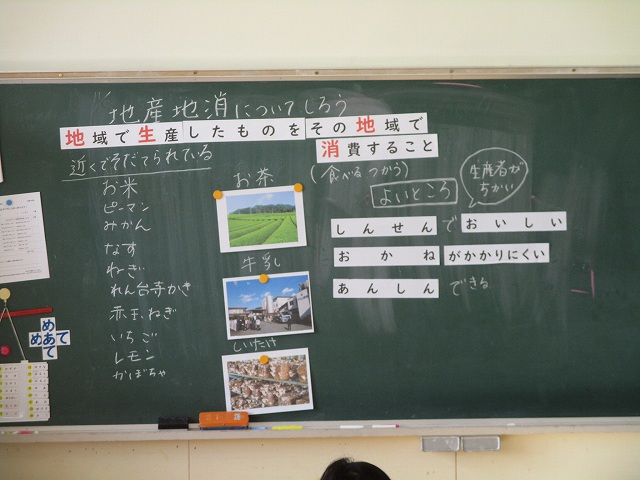 地産地消についてしろう
地域で生産したものをその地域で
消費すること
(食べる つかう)
近くでそだてられている
お米
ピーマン
みかん
なす
ねぎ
れん台寺かき
赤玉ねぎ
いちご
レモン
かぼちゃ
お茶
牛乳
しいたけ
よいところ
生産者が
ちかい
しんせんで おいしい
おかね がかかりにくい
あんしん できる
めあて
めあて